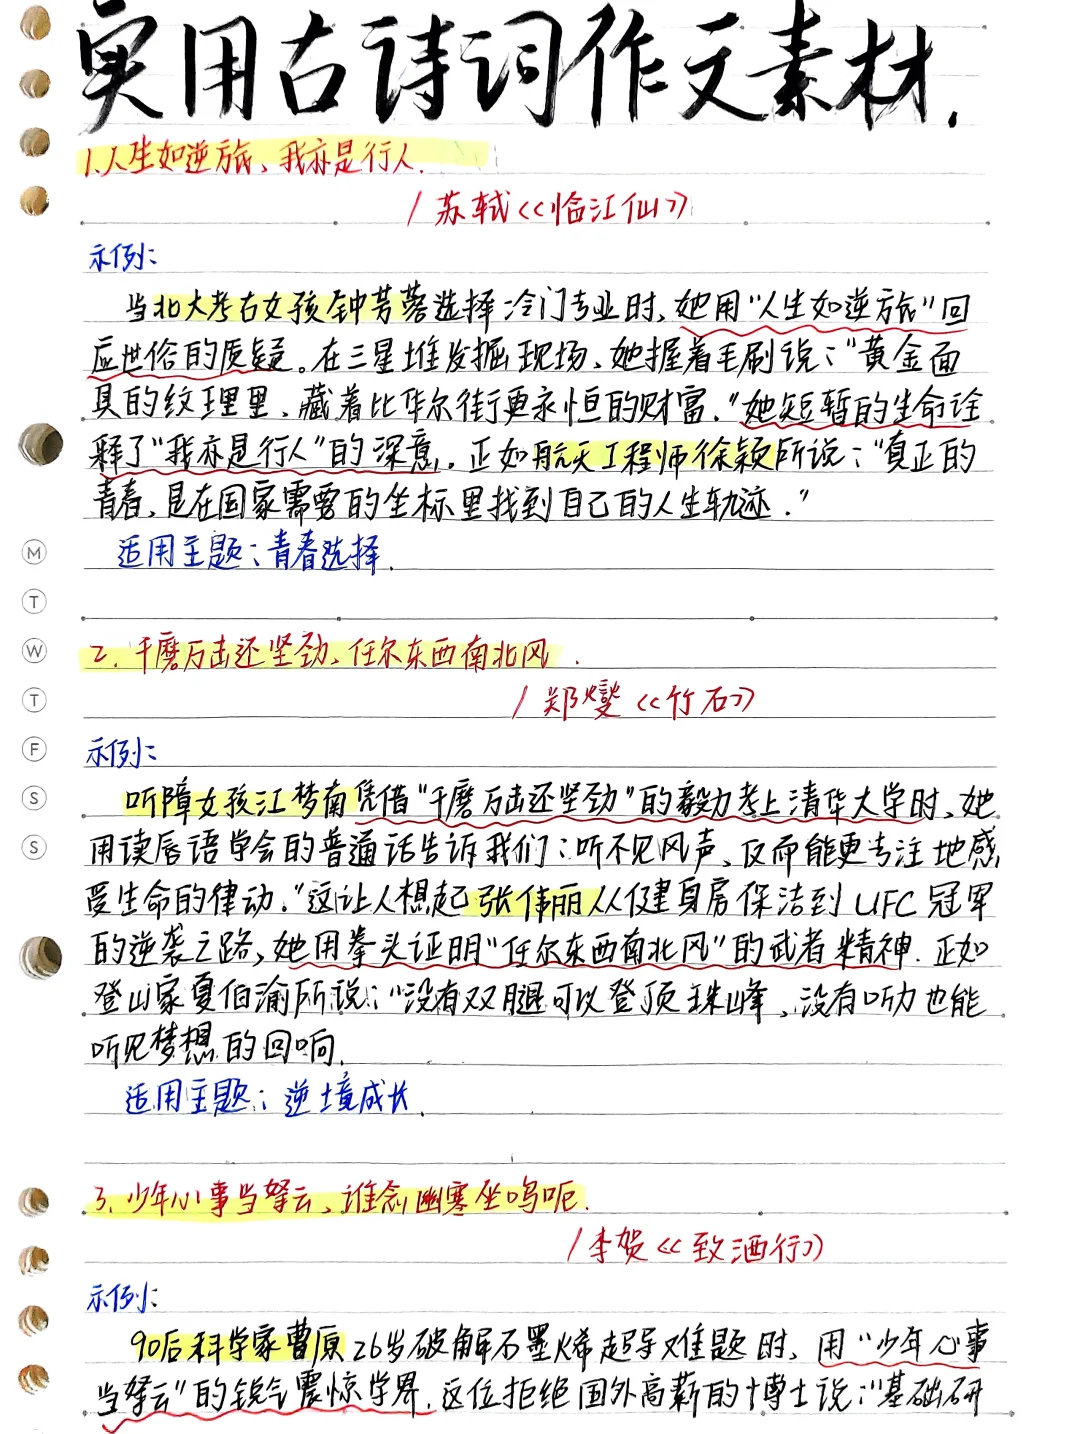 实用古诗词作文素材.
1.人生如逆旅、我亦是行人.
/苏轼《临江仙》
示例:
当北大考古女孩钟芳蓉选择冷门专业时,她用“人生如逆旅”回
应世俗的质疑。在三星堆发掘现场、她握着毛刷说:“黄金面
具的纹理里、藏着比华尔街更永恒的财富.”她短暂的生命诠
释了“我亦是行人”的深意。正如航天工程师徐颖所说:“真正的
青春、是在国家需要的坐标里找到自己的人生轨迹.”
适用主题:青春选择.
2.千磨万击还坚劲、任尔东西南北风.
/郑燮《竹石》
示例:
听障女孩江梦南凭借“千磨万击还坚劲”的毅力考上清华大学时、她
用读唇语学会的普通话告诉我们:听不见风声、反而能更专注地感
受生命的律动.”这让人想起张伟丽从健身房保洁到UFC冠军
的逆袭之路,她用拳头证明“任尔东西南北风”的武者精神.正如
登山家夏伯渝所说:“没有双腿可以登顶珠峰、没有听力也能
听见梦想的回响.
适用主题:逆境成长.
3.少年心事当拏云、谁念幽寒坐呜呃.
/李贺《致酒行》
示例:
90后科学家曹原26岁破解石墨烯超导难题时、用“少年心事
当拏云”的锐气震惊学界.这位拒绝国外高薪的博士说:“基础研
M
T
W
T
F
S
S